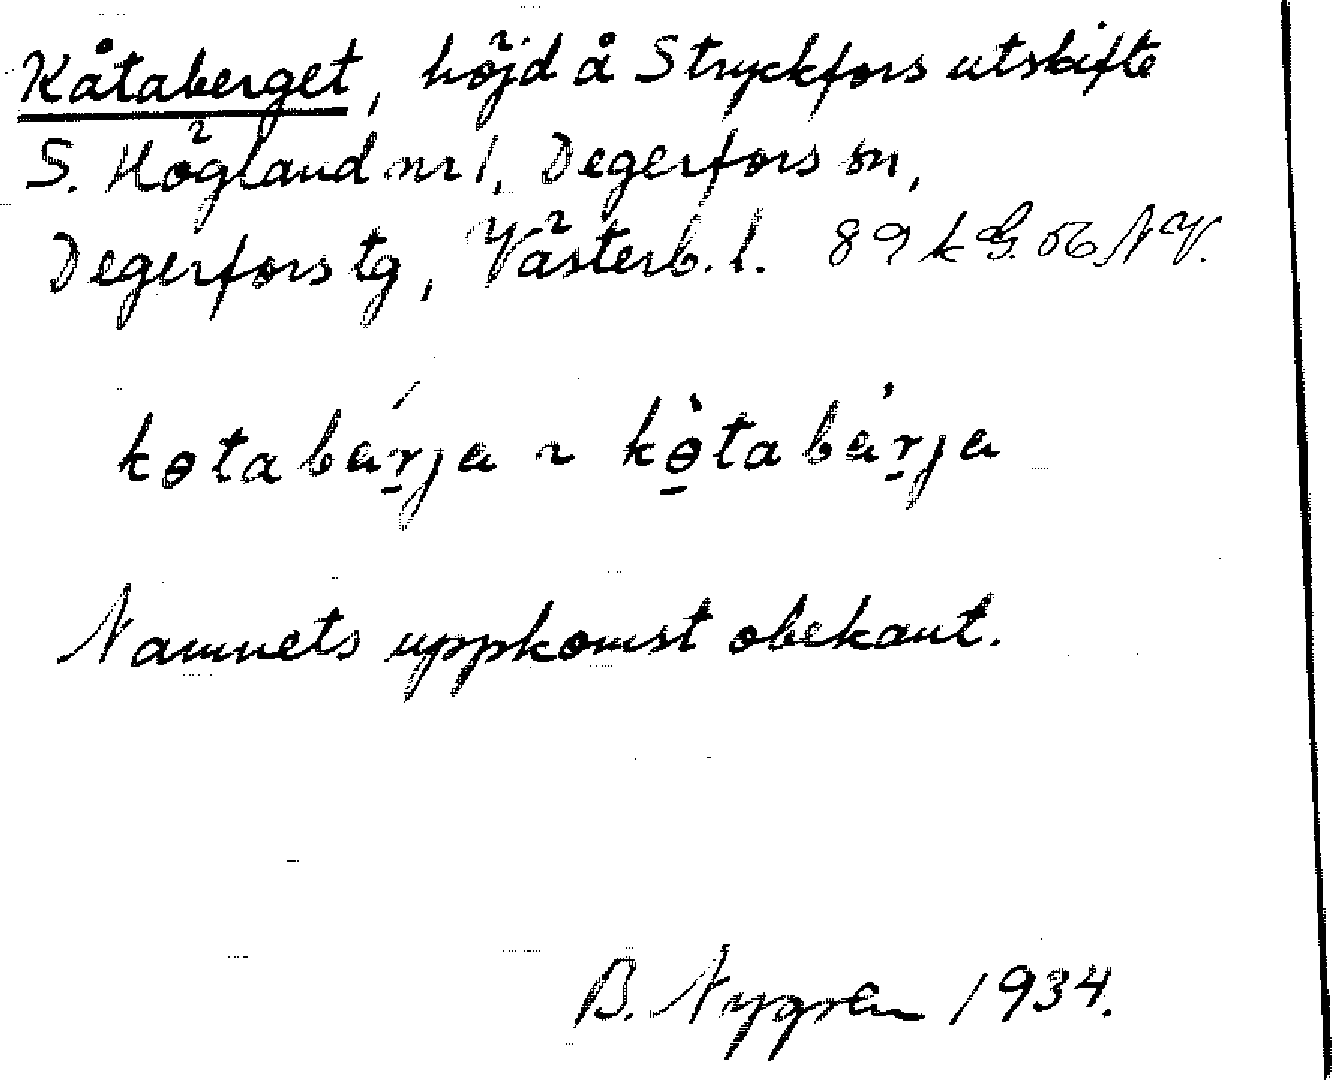 Kåtaberget, höjd å Stryckfors utskifte
S. Högland nr 1, Degerfors sn,
Degerfors tg, Västerb. l. 89 k G. 06 NV.
kɵtabárja ~ kɵ̀tabàrja
Namnets uppkomst obekant.
B. Nygren 1934.